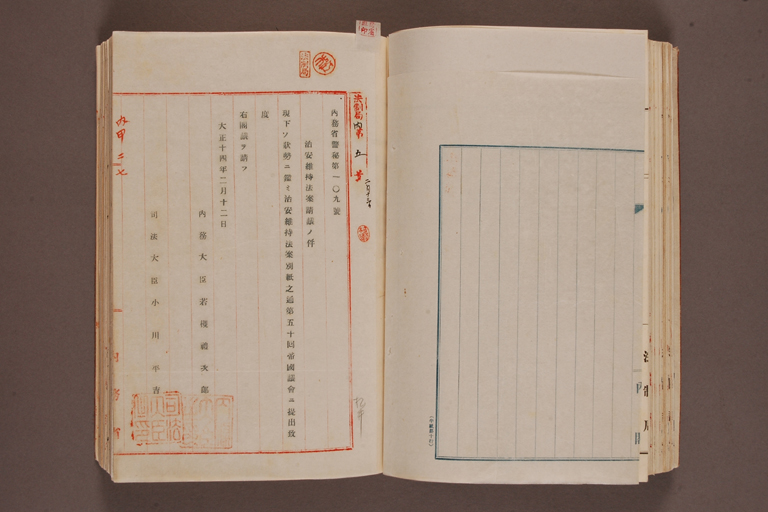 内務省警秘第一〇九號
治安維持法案請議ノ件
現下ノ狀勢ニ鑑ミ治安維持法案別紙之通第五十回帝國議會ニ提出致
度
右閣議ヲ請フ
大正十四年二月十二日
內務大臣若槻禮次郞
司法大臣小川平吉
法制局內第五號
二月十二日
內甲二七